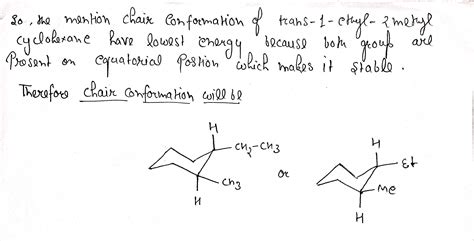 So, the mention chair conformation of trans-1-ethyl-2 methyl
cyclohexane have lowest energy because both group are
Present on equatorial Postion which makes it stable.
Therefore chair conformation will be
H
H
CH2-CH3
Et
CH3
or
Me
H
H